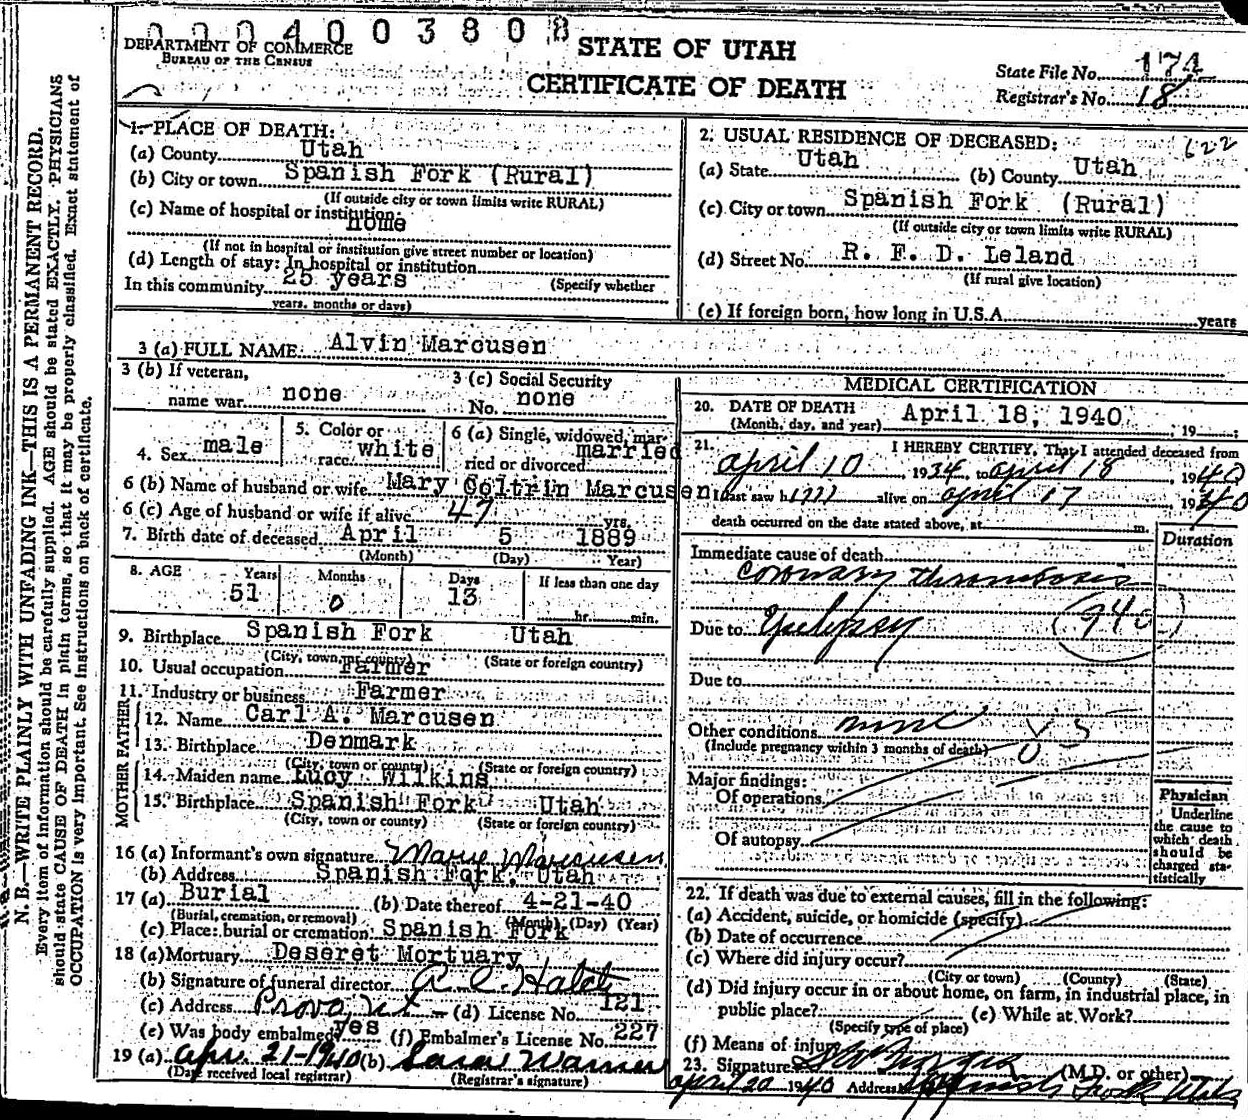 0 0 0 4 0 0 3 8 0 8
DEPARTMENT OF COMMERCE
BUREAU OF THE CENSUS
STATE OF UTAH
CERTIFICATE OF DEATH
State File No. 174
Registrar's No. 18
N. B.—WRITE PLAINLY WITH UNFADING INK—THIS IS A PERMANENT RECORD.
Every item of information should be carefully supplied. AGE should be stated EXACTLY. PHYSICIANS
should state CAUSE OF DEATH in plain terms, so that it may be properly classified. Exact statement of
OCCUPATION is very important. See instructions on back of certificate.
1. PLACE OF DEATH:
(a) County Utah
(b) City or town Spanish Fork (Rural)
(If outside city or town limits write RURAL)
(c) Name of hospital or institution:
home
(If not in hospital or institution give street number or location)
(d) Length of stay: In hospital or institution
In this community 25 years (Specify whether
years, months or days)
2. USUAL RESIDENCE OF DECEASED: 622
(a) State Utah (b) County Utah
(c) City or town Spanish Fork (Rural)
(If outside city or town limits write RURAL)
(d) Street No. R. F. D. Leland
(If rural give location)
(e) If foreign born, how long in U.S.A. years
3 (a) FULL NAME Alvin Marcusen
3 (b) If veteran,
name war none
3 (c) Social Security
No. none
4. Sex male
5. Color or
race white
6 (a) Single, widowed, mar-
ried or divorced married
6 (b) Name of husband or wife Mary Coltrin Marcusen
6 (c) Age of husband or wife if alive 47 yrs.
7. Birth date of deceased April 5 1889
(Month) (Day) Year)
8. AGE Years Months Days If less than one day
51 0 13 hr. min.
9. Birthplace Spanish Fork Utah
(City, town, or county) (State or foreign country)
10. Usual occupation Farmer
11. Industry or business Farmer
FATHER
12. Name Carl A. Marcusen
13. Birthplace Denmark
(City, town or county) (State or foreign country)
MOTHER
14. Maiden name Lucy Wilkins
15. Birthplace Spanish Fork Utah
(City, town or county) (State or foreign country)
16 (a) Informant's own signature Mary Marcusen
(b) Address Spanish Fork, Utah
17 (a) Burial (b) Date thereof 4-21-40
(Burial, cremation, or removal) (Month) (Day) (Year)
(c) Place: burial or cremation Spanish Fork
18 (a) Mortuary Deseret Mortuary
(b) Signature of funeral director A. C. Hatch
(c) Address Provo, Ut (d) License No. 121
(e) Was body embalmed yes (f) Embalmer's License No. 227
19 (a) Apr. 21-1940 (b) Warner
(Date received local registrar) (Registrar's signature)
MEDICAL CERTIFICATION
20. DATE OF DEATH April 18, 1940
(Month, day, and year) , 19 ;
21. I HEREBY CERTIFY, That I attended deceased from
april 10 1934, to april 18 1940
I last saw him alive on april 17 1940
death occurred on the date stated above, at m.
Duration
Immediate cause of death
Coronary thrombosis
Due to (940)
Due to
Other conditions none 85
(Include pregnancy within 3 months of death)
Major findings:
Of operations
Of autopsy
Physician
Underline
the cause to
which death
should be
charged sta-
tistically
22. If death was due to external causes, fill in the following:
(a) Accident, suicide, or homicide (specify)
(b) Date of occurrence
(c) Where did injury occur?
(City or town) (County) (State)
(d) Did injury occur in or about home, on farm, in industrial place, in
public place? (e) While at Work?
(Specify type of place)
(f) Means of injury
23. Signature (M.D. or other)
april 20 1940 Address Spanish Fork Utah